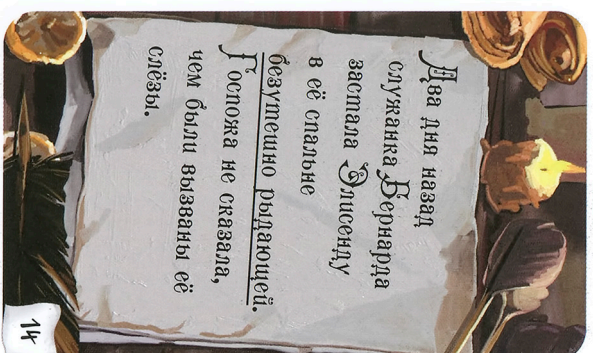 Два дня назад
служанка Бернарда
застала Элисенду
в её спальне
безутешно рыдающей.
Госпожа не сказала,
чем были вызваны её
слёзы.
14